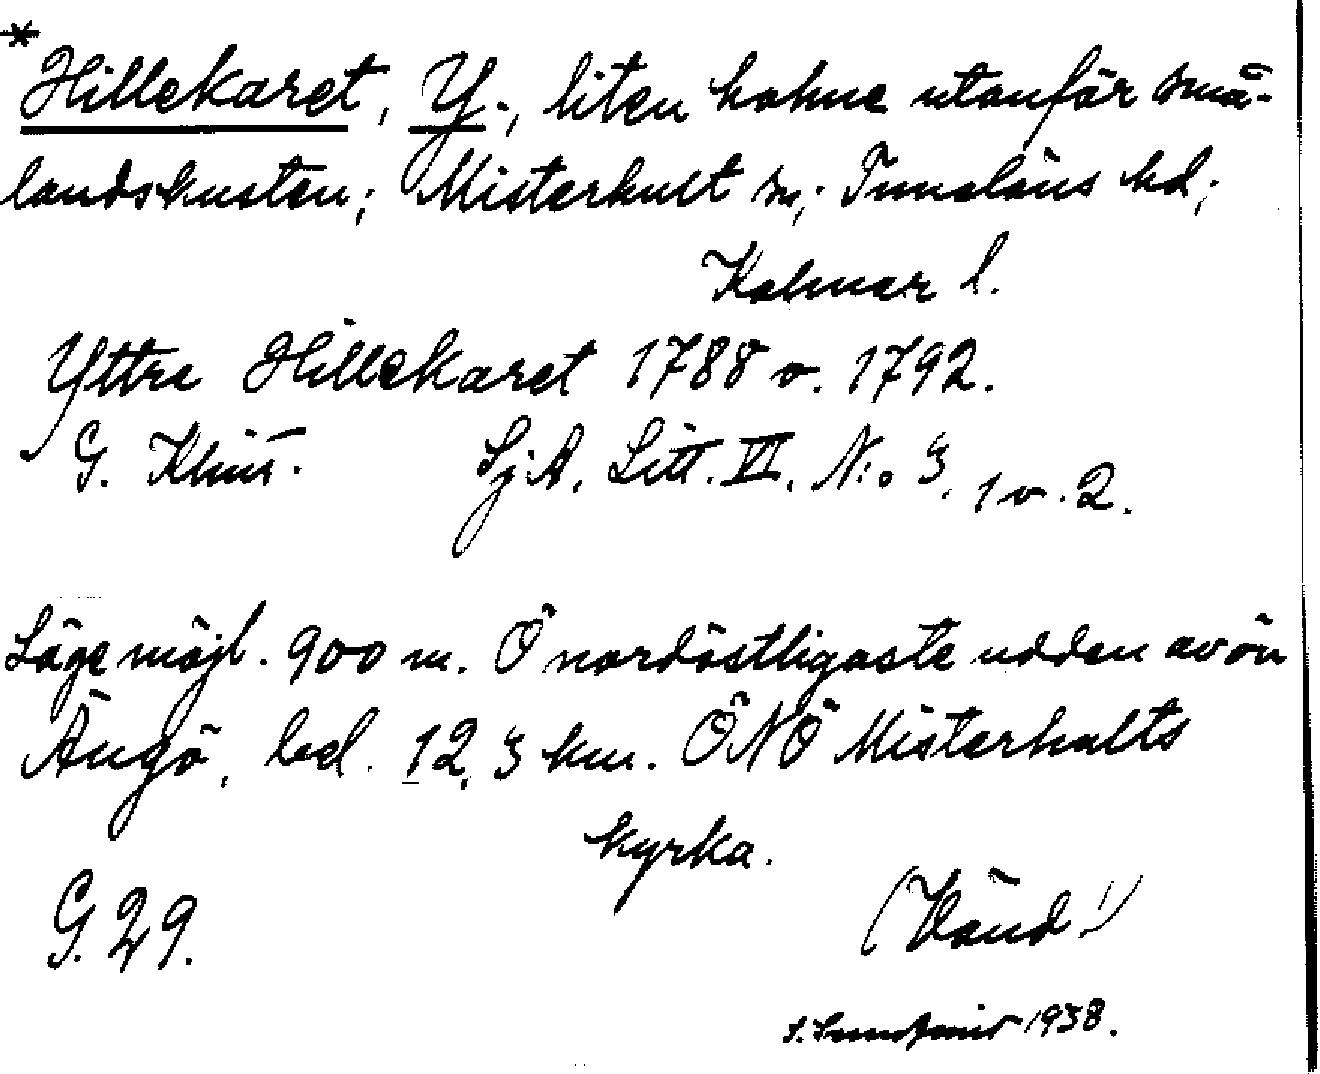 *Hillekaret, Y., liten holme utanför små-
landskusten; Misterhult sn; Tunaläns hd;
Kalmar l.
Yttre Hillekaret 1788 o. 1792.
G. Klint. Sj.A. Litt. VI. N:o 3, 1 o. 2.
Läge möjl. 900 m. Ö nordöstligaste udden av ön
Ängö, bel. 12,3 km. ÖNÖ Misterhults
kyrka.
G. 29. (Vänd!)
1938.